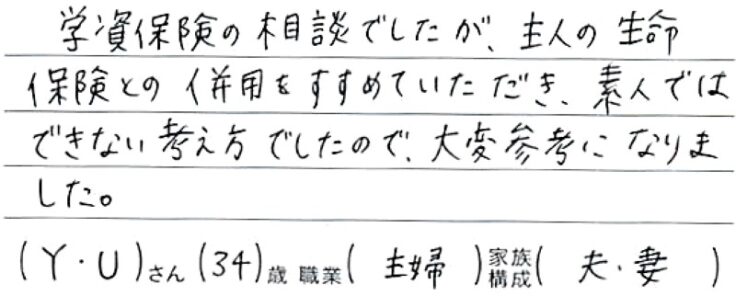 学資保険の相談でしたが、主人の生命
保険との併用をすすめていただき、素人では
できない考え方でしたので、大変参考になりま
した。
(Y・U)さん(34)歳 職業(主婦)家族構成(夫・妻)